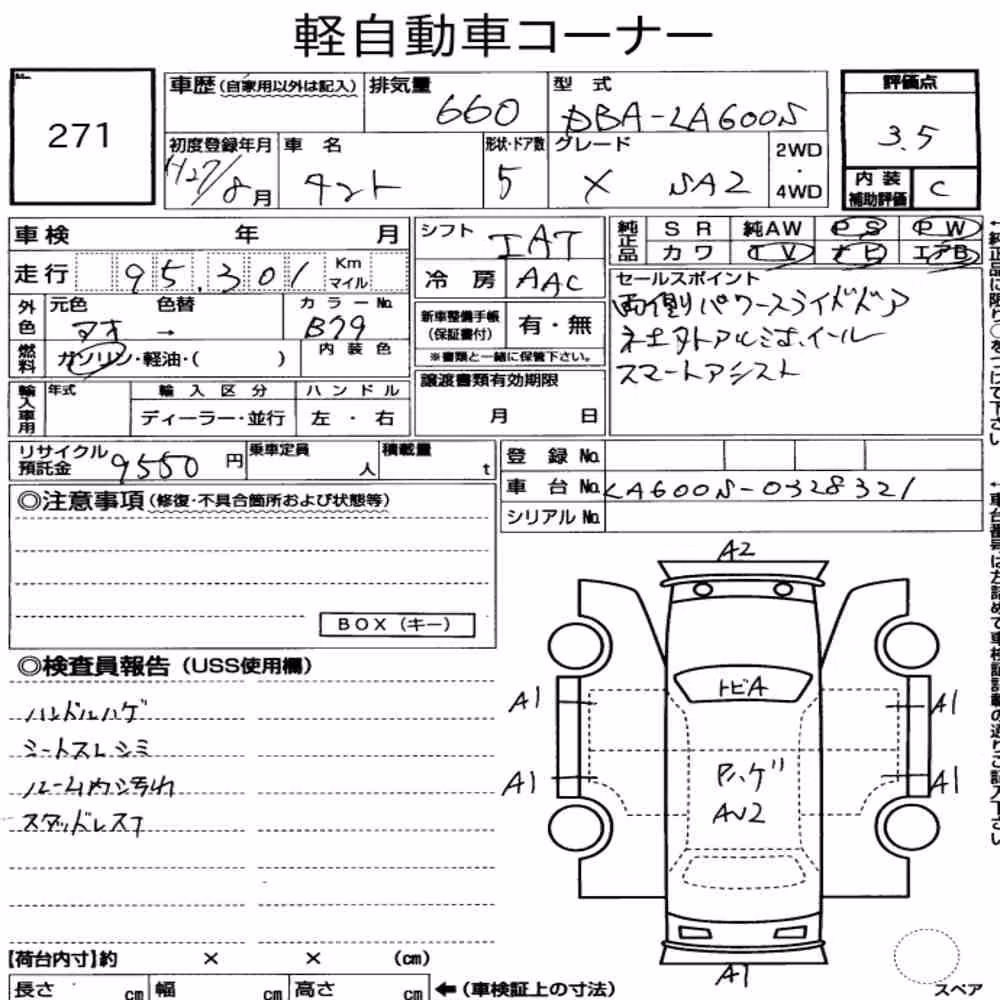 軽自動車コーナー
271
車歴(自家用以外は記入)
排気量 660
型式 DBA-LA600S
評価点 3.5
初度登録年月 H27/8月
車名 タント
形状・ドア数 5
グレード X SA2
2WD・4WD
内装補助評価 C
車検 年 月
走行 95,301 Km マイル
外色 元色 アオ → 色替
カラーNo. B79
燃料 ガソリン・軽油・( )
内装色
輸入車用 年式
輸入区分 ディーラー・並行
ハンドル 左・右
シフト IAT
冷房 AAC
新車整備手帳(保証書付) 有・無
※書類と一緒に保管下さい。
譲渡書類有効期限
月 日
純正品 SR 純AW PS PW
カワ TV ナビ エアB
セールスポイント
両側パワースライドドア
社外アルミホイール
スマートアシスト
←純正品に限り○をつけて下さい
リサイクル預託金 9550円
乗車定員 人
積載量 t
登録No.
車台No. LA600S-0328321
シリアルNo.
◎注意事項(修復・不具合箇所および状態等)
BOX(キー)
◎検査員報告(USS使用欄)
ハンドルハゲ
シートスレシミ
ルーム内シ汚れ
スタッドレス7
A2
A1
トビA
A1
A1
Pハゲ
AU2
A1
A1
スペア
【荷台内寸】約 × × (cm)
長さ cm 幅 cm 高さ cm ←(車検証上の寸法)